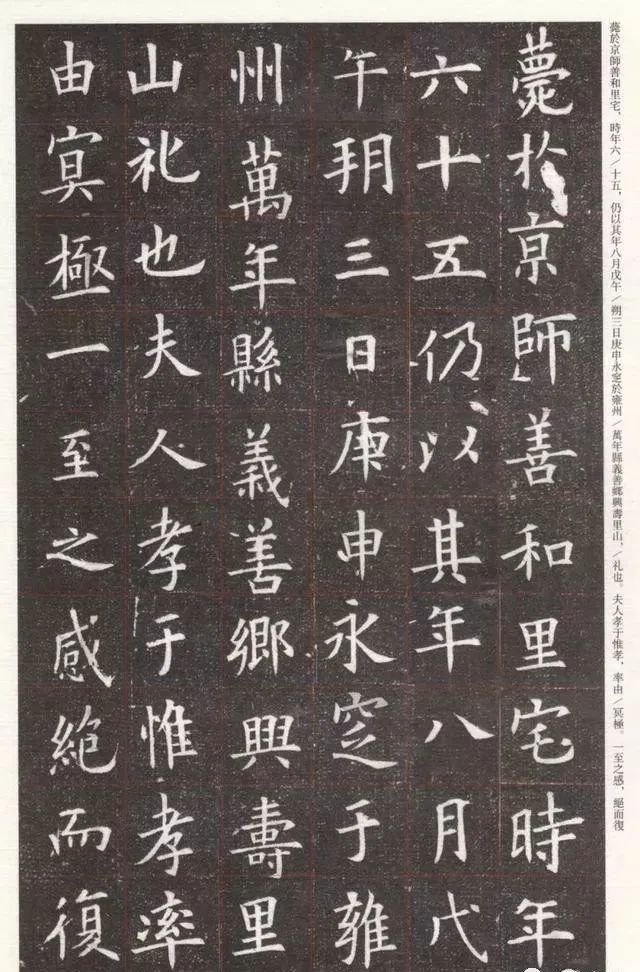 薨於京師善和里宅，時年六／十五，仍以其年八月戊午／朔三日庚申永窆於雍州／萬年縣義善鄉興壽里山，／礼也。夫人孝于惟孝，率由／冥極。一至之感，絕而復
薨於京師善和里宅時年
六十五仍以其年八月戊
午朔三日庚申永窆于雍
州萬年縣義善鄉興壽里
山礼也夫人孝于惟孝率
由冥極一至之感絕而復